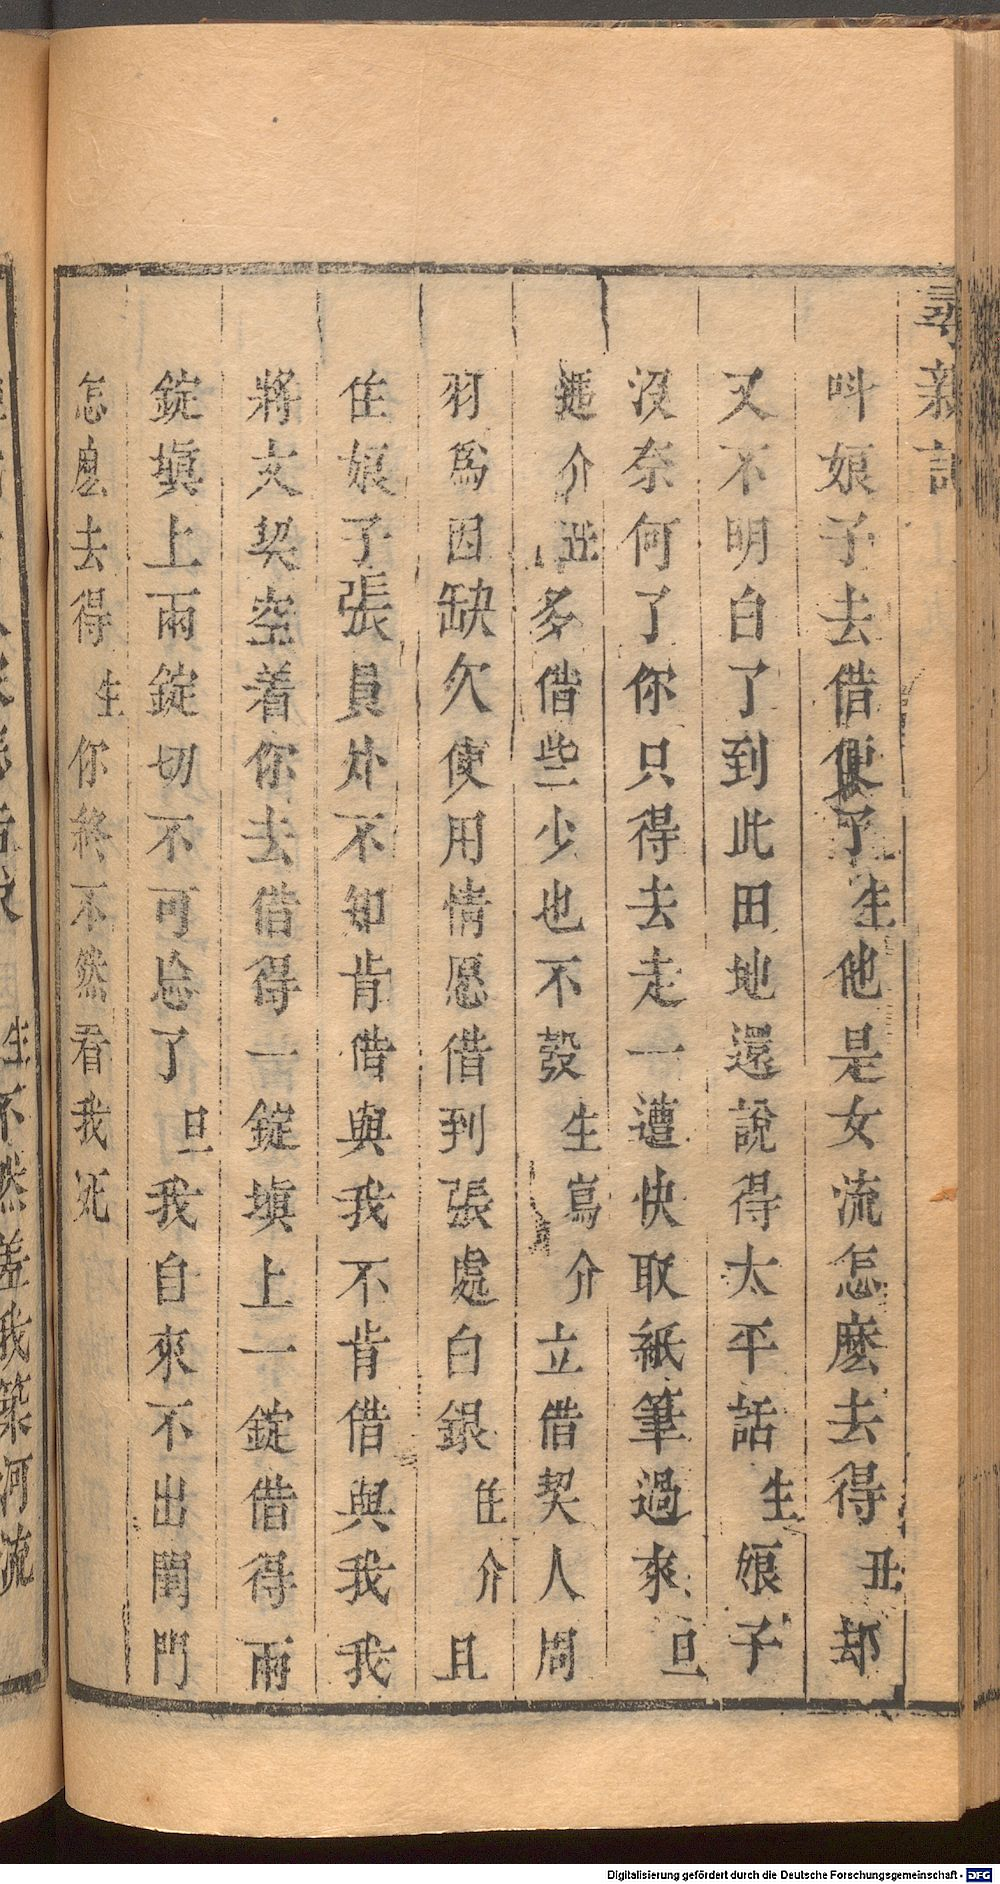 尋親記
呌娘子去借便了生他是女流怎麽去得丑却
又不明白了到此田地還說得太平話生娘子
沒奈何了你只得去走一遭快取紙筆過來旦
遞介丑多借些少也不彀生寫介立借契人周
羽爲因缺欠使用情愿借到張處白銀住介且
住娘子張員外不知肯借與我不肯借與我我
將文契空着你去借得一錠塡上一錠借得兩
錠塡上兩錠切不可忘了旦我自來不出閨門
怎麽去得生你終不然看我死
生不然差我築河流
Digitalisierung gefördert durch die Deutsche Forschungsgemeinschaft - DFG